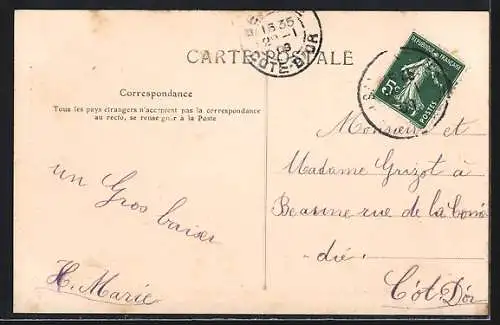 15 35
CÔTE-D'OR
CARTE POSTALE
REPUBLIQUE FRANÇAISE
5c
POSTES
Correspondance
Tous les pays étrangers n'acceptent pas la correspondance
au recto, se renseigner à la Poste
un Gros baiser
H. Marie
Monsieur et
Madame Grizot à
Beaune rue de la Comé
die
Côt. D'Or